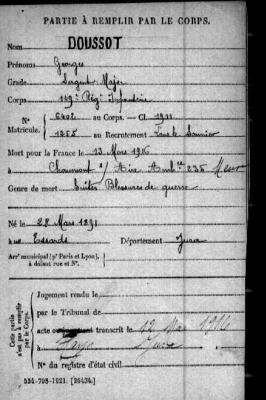 PARTIE À REMPLIR PAR LE CORPS.
Nom DOUSSOT
Prénoms Georges
Grade Sergent Major
Corps 149e Régt Infanterie
N° 6402 au Corps. — Cl. 1911
Matricule. 1255 au Recrutement Lons le Saunier
Mort pour la France le 13 Mars 1916
à Chaumont s/ Aire Amb. 225 Meuse
Genre de mort Suites Blessures de guerre
Né le 28 Mars 1891
aux Essards Département Jura
Arrt municipal (pr Paris et Lyon), à défaut rue et N°.
Cette partie n'est pas à remplir par le Corps.
Jugement rendu le
par le Tribunal de
acte ou jugement transcrit le 12 Mai 1916
à Jura
N° du registre d'état civil
534-708-1921. [26434.]